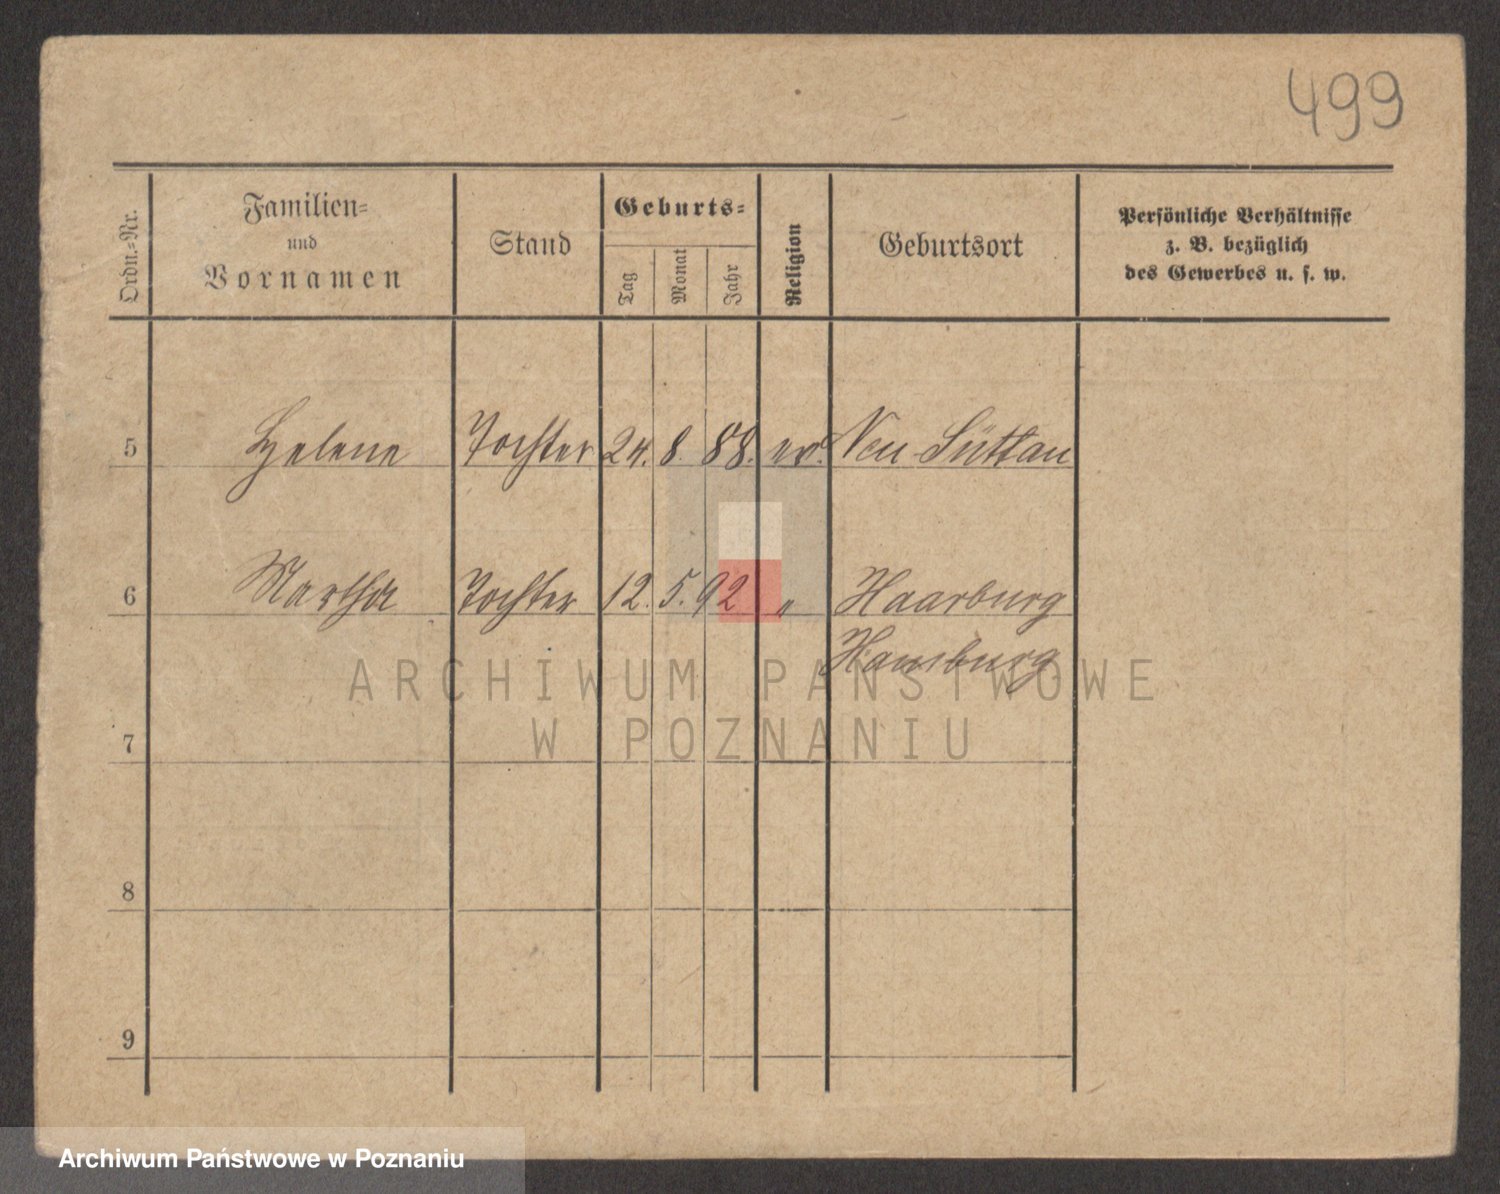 499
Ordn.-Nr.
Familien-
und
Vornamen
Stand
Geburts-
Tag
Monat
Jahr
Religion
Geburtsort
Persönliche Verhältnisse
z. B. bezüglich
des Gewerbes u. s. w.
5 Helene Tochter 24. 8. 88. ev. Neu
6 Martha Tochter 12. 5. 92 " Haarburg
Hamburg
7
8
9
ARCHIWUM PAŃSTWOWE
W POZNANIU
Archiwum Państwowe w Poznaniu